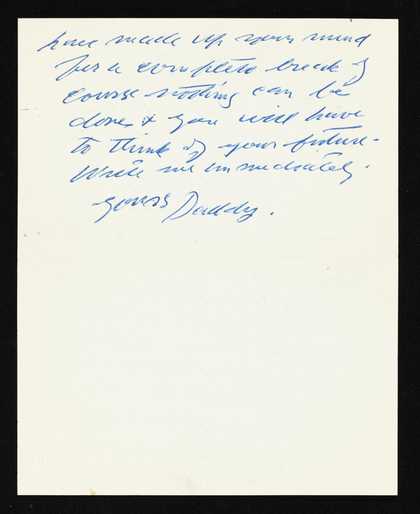 have made up your mind
for a complete break of
course nothing can be
done & you will have
to think of your future -
Write me immediately.
yours Daddy.